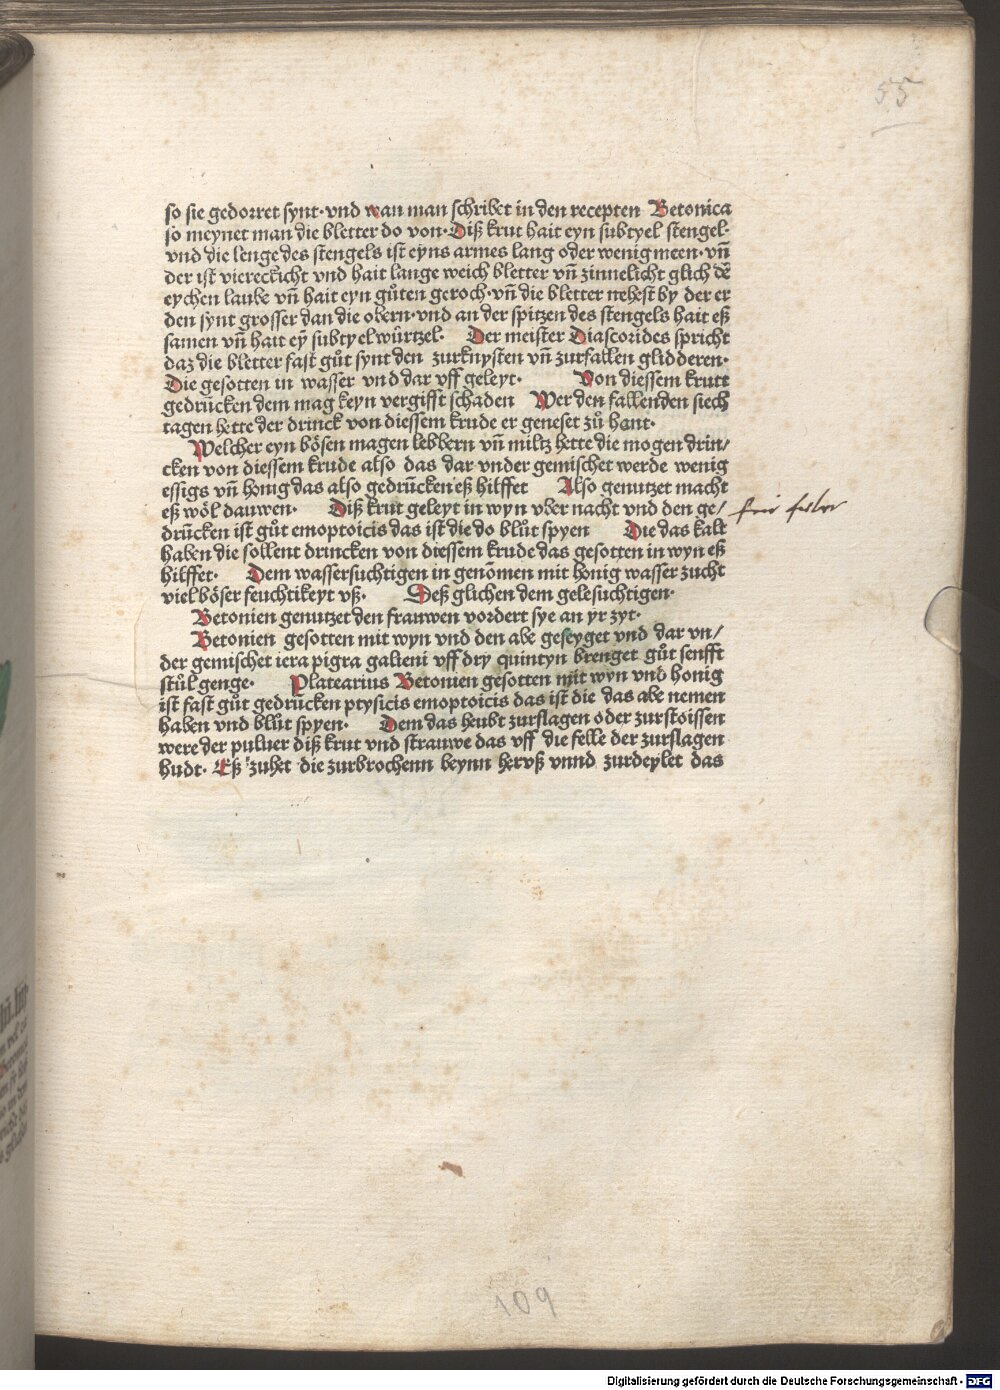 55
so sie gedorret synt·vnd wan man schribet in den recepten Betonica
so meynet man die bletter do von·Diß krut hait eyn subtyel stengel·
vnd die lenge des stengels ist eyns armes lang oder wenig meen·vñ
der ist viereckicht vnd hait lange weich bletter vñ zinnelicht glich dē
eychen laube vñ hait eyn gůten geroch·vñ die bletter nehest by der er
den synt grosser dan die obern·vnd an der spitzen des stengels hait eß
samen vñ hait eȳ subtyel wůrtzel· Der meister Diascorides spricht
daz die bletter fast gůt synt den zurknysten vñ zurfallen glidderen·
Die gesotten in wasser vnd dar vff geleyt· Von diessem krutt
gedrůcken dem mag keyn vergifft schaden Wer den fallenden siech
tagen hette der drinck von diessem krude er geneset zů hant·
Welcher eyn bősen magen lebbern vñ miltz hette die mogen drin/
cken von diessem krude also das dar vnder gemischet werde wenig
essigs vñ honig das also gedrůcken eß hilffet Also genutzet macht
eß wől dauwen· Diß krut geleyt in wyn vber nacht vnd den ge/
drůcken ist gůt emoptoicis das ist die do blůt spyen Die das kalt
haben die sollent drincken von diessem krude das gesotten in wyn eß
hilffet· Dem wassersuchtigen in genōmen mit honig wasser zucht
viel bőser feuchtikeyt vß· Deß glichen dem gelesuchtigen·
Betonien genutzet den frauwen vordert sye an yr zyt·
Betonien gesotten mit wyn vnd den abe geseyget vnd dar vn/
der gemischet iera pigra galieni vff dry quintyn brenget gůt senfft
stůl genge· Platearius Betonien gesotten mit wyn vnd honig
ist fast gůt gedrůcken ptysicis emoptoicis das ist die das abe nemen
haben vnd blůt spyen· Dem das heubt zurslagen oder zurstoissen
were der puluer diß krut vnd strauwe das vff die felle der zurslagen
hudt· Eß zuhet die zurbrochenn beynn hervß vnnd zurdeylet das
109
Digitalisierung gefördert durch die Deutsche Forschungsgemeinschaft - DFG